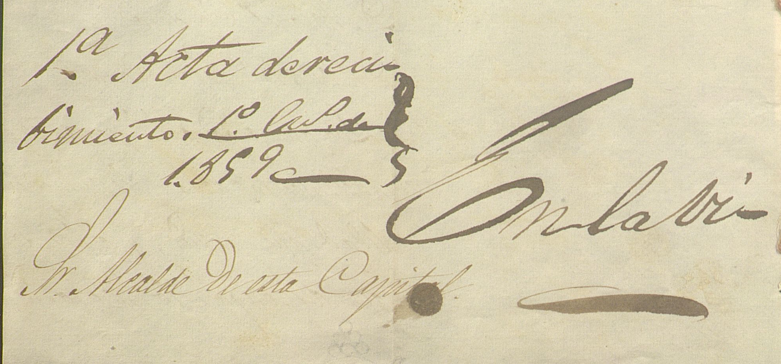 1ª Acta dereci-
bimiento. 1º. de
1.859
En la Vi-
Sr. Alcalde De esta Capital.